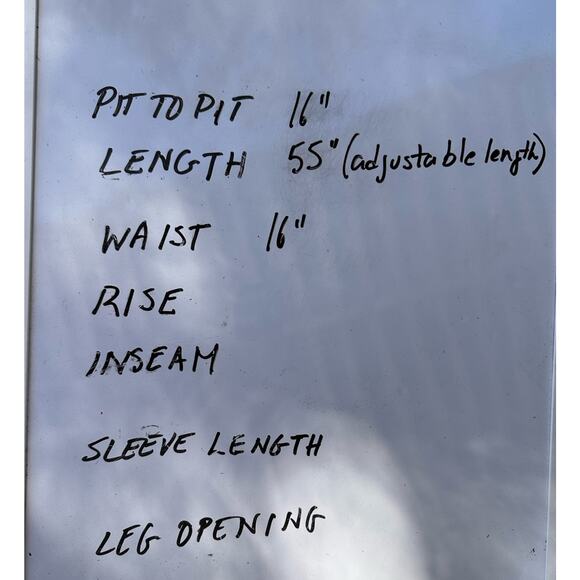 PIT TO PIT 16"
LENGTH 55" (adjustable length)
WAIST 16"
RISE
INSEAM
SLEEVE LENGTH
LEG OPENING